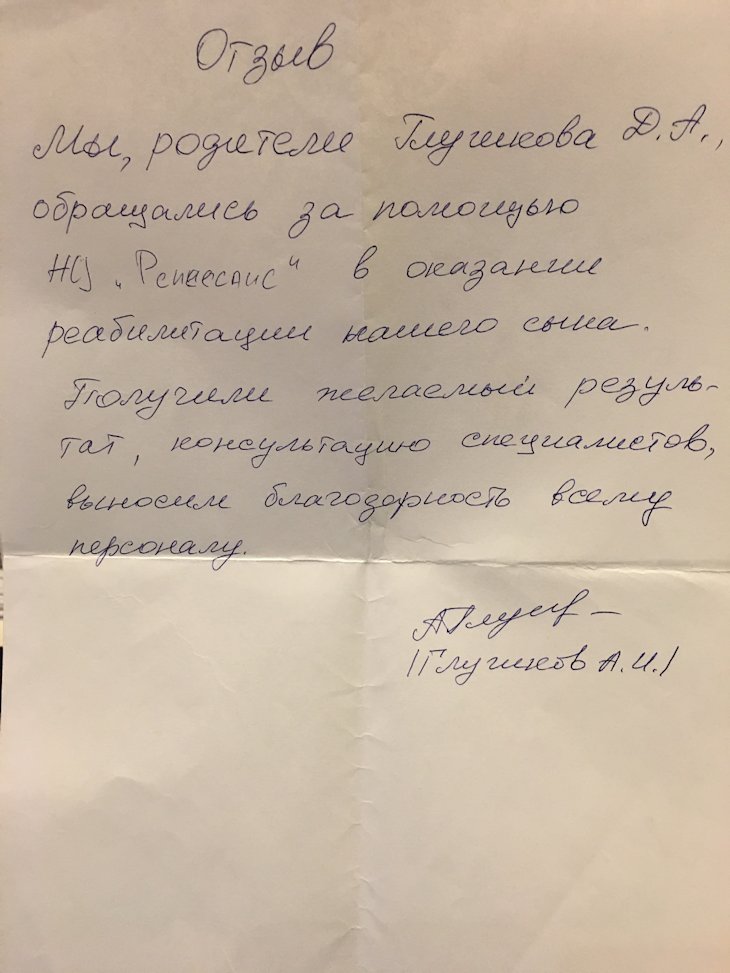 Отзыв
Мы, родители Глушкова Д.А.,
обращались за помощью
"Ренессанс" в оказании
реабилитации нашего сына.
Получили желаемый резуль-
тат, консультацию специалистов,
выносим благодарность всему
персоналу.
А.И./